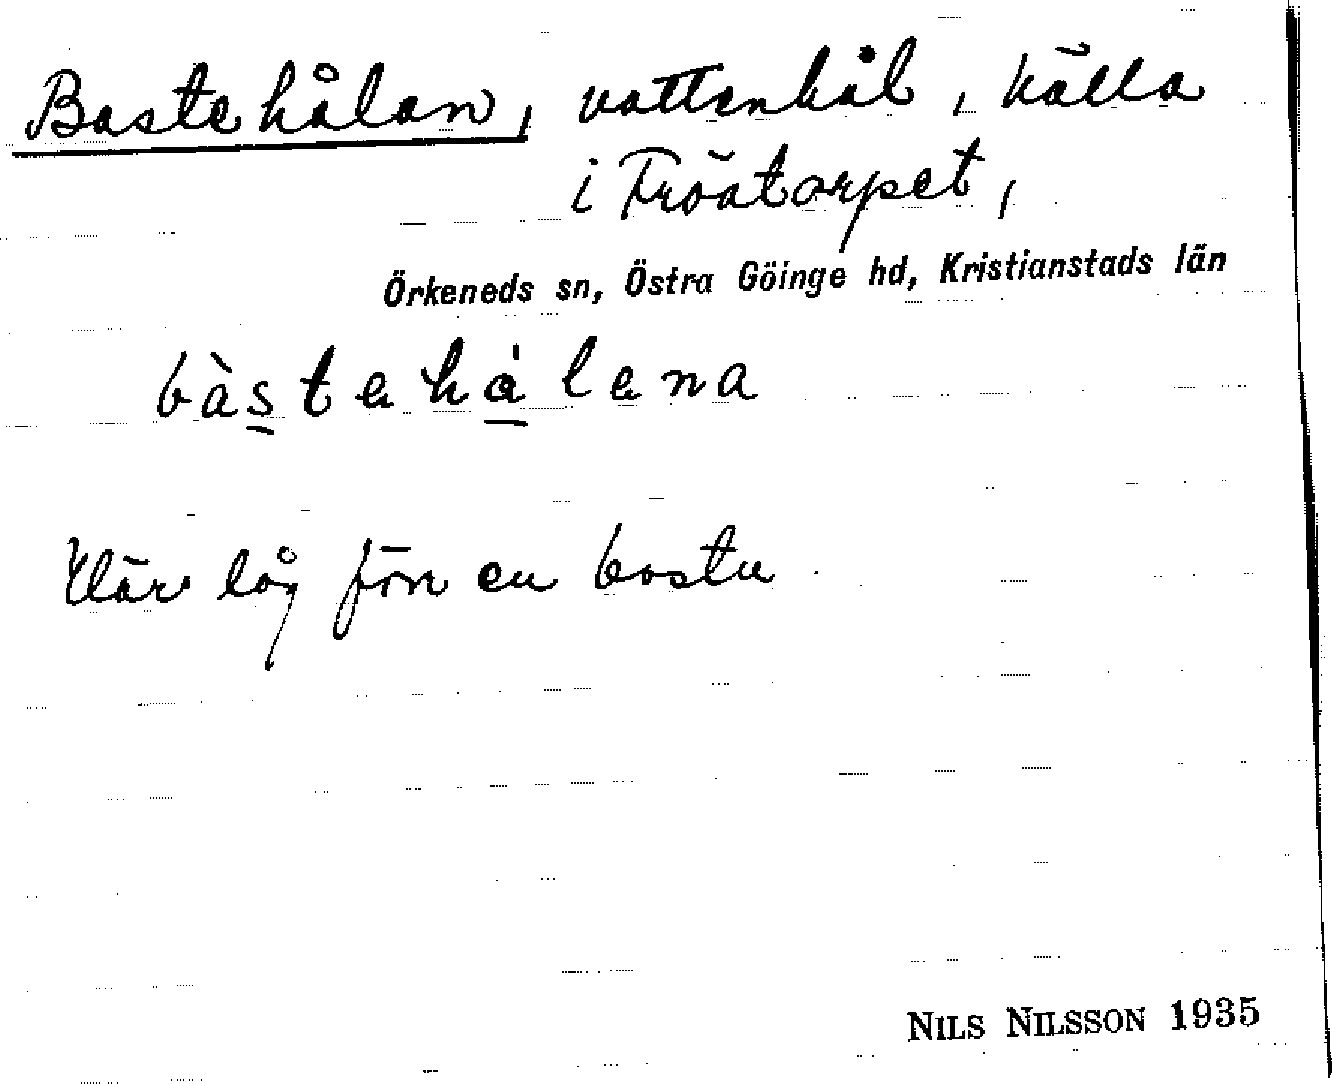 Bastehålan, vattenhål, källa
i Fröatorpet,
Örkeneds sn, Östra Göinge hd, Kristianstads län
bàstehålena
Här låg förr en bastu
NILS NILSSON 1935